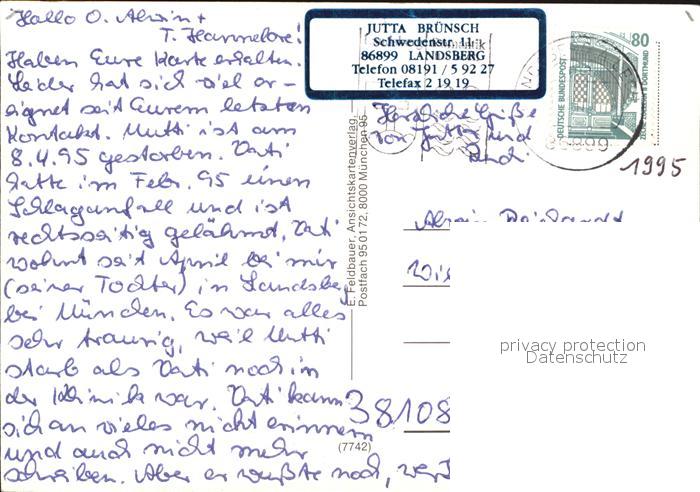 Hallo O. Alwin +
T. Hannelore!
Haben Eure Karte erhalten.
Leider hat sich viel er-
eignet seit Eurem letzten
Kontakt. Mutti ist am
8.4.95 gestorben. Vati
hatte im Febr. 95 einen
Schlaganfall und ist
rechtsseitig gelähmt. Vati
wohnt seit April bei mir
(seiner Tochter) in Landsberg
bei München. Es war alles
sehr traurig, weil Mutti
starb als Vati noch in
der Klinik war. Vati kann
sich an vieles nicht erinnern
und auch nicht mehr
schreiben. Aber er wußte noch, wer
JUTTA BRÜNSCH
Schwedenstr. 11
86899 LANDSBERG
Telefon 08191 / 5 92 27
Telefax 2 19 19
Herzliche Grüße
von Jutta und
80
DEUTSCHE BUNDESPOST
86899
1995
E. Feldbauer, Ansichtskartenverlag,
Postfach 950172, 8000 München 95
Alwin
38108
(7742)
privacy protection
Datenschutz